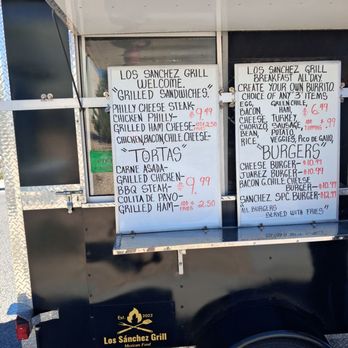 LOS SANCHEZ GRILL
WELCOME
"GRILLED SANDWICHES"
PHILLY CHEESE STEAK-
CHICKEN PHILLY- $9.99
GRILLED HAM CHEESE-
CHICKEN, BACON, CHILE, CHEESE
"TORTAS"
CARNE ASADA-
GRILLED CHICKEN-
BBQ STEAK- $9.99
COLITA DE PAVO-
GRILLED HAM- $2.50
LOS SANCHEZ GRILL
BREAKFAST ALL DAY
CREATE YOUR OWN BURRITO
CHOICE OF ANY 3 ITEMS
EGG, GREEN CHILE,
BACON, HAM, $6.99
CHEESE, TURKEY,
CHORIZO, SAUSAGE,
BEAN, POTATO,
RICE, VEGGIES, PICO DE GALLO
"BURGERS"
CHEESE BURGER-$10.99
JUAREZ BURGER-$10.99
BACON G. CHILE CHEESE
BURGER-$10.99
SANCHEZ SPC BURGER-$12.99
"ALL BURGERS
SERVED WITH FRIES"
Est. 2022
Los Sánchez Grill
Mexican Food